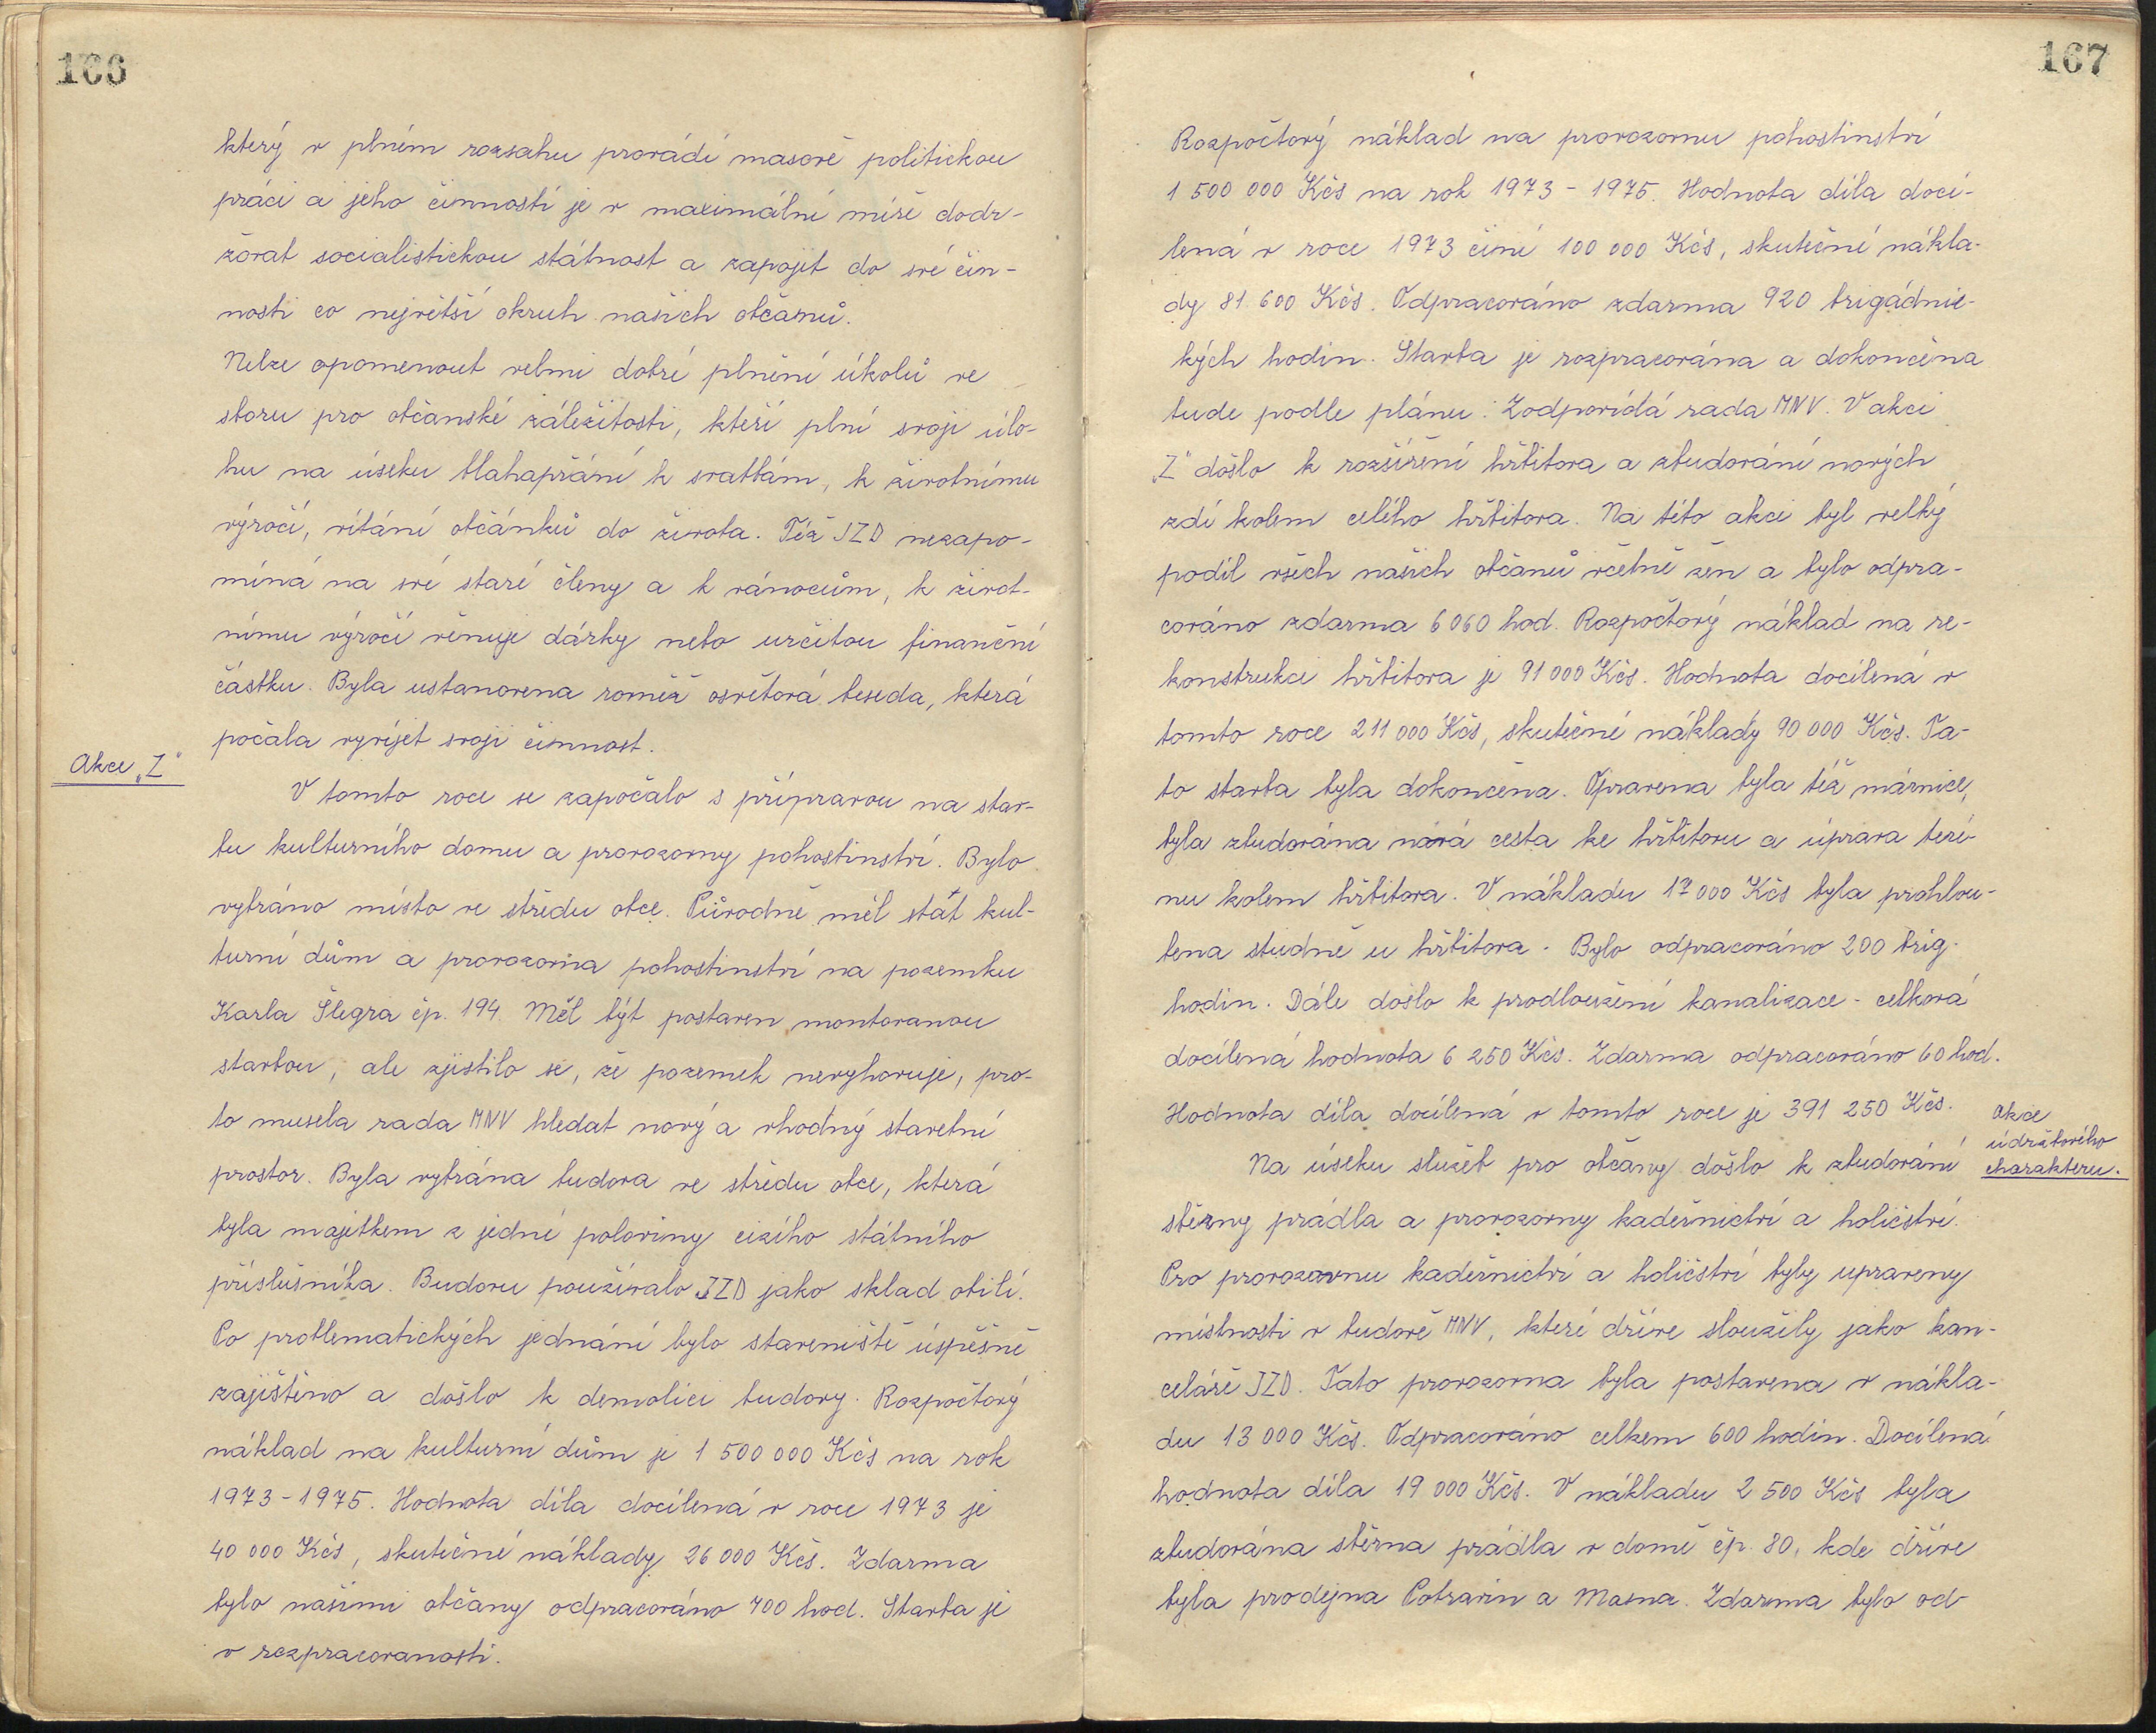 166
který v plném rozsahu provádí masově politickou
práci a jeho činností je v maximální míře dodr-
žovat socialistickou státnost a zapojit do své čin-
nosti co největší okruh našich občanů.
Nelze opomenout velmi dobré plnění úkolů ve
sboru pro občanské záležitosti, kteří plní svoji úlo-
hu na úseku blahapřání k svatbám, k životnímu
výročí, vítání občánků do života. Též JZD nezapo-
míná na své staré členy a k vánocům, k život-
nímu výročí věnuje dárky nebo určitou finanční
částku. Byla ustanovena rovněž osvětová beseda, která
počala vyvíjet svoji činnost.
Akce „Z"
V tomto roce se započalo s přípravou na stav-
bu kulturního domu a provozovny pohostinství. Bylo
vybráno místo ve středu obce. Původně měl stát kul-
turní dům a provozovna pohostinství na pozemku
Karla Šlegra čp. 194. Měl být postaven montovanou
stavbou, ale zjistilo se, že pozemek nevyhovuje, pro-
to musela rada MNV hledat nový a vhodný stavební
prostor. Byla vybrána budova ve středu obce, která
byla majetkem z jedné poloviny cizího státního
příslušníka. Budovu používalo JZD jako sklad obilí.
Po problematických jednání bylo staveniště úspěšně
zajištěno a došlo k demolici budovy. Rozpočtový
náklad na kulturní dům je 1 500 000 Kčs na rok
1973-1975. Hodnota díla docílená v roce 1973 je
40 000 Kčs, skutečné náklady 26 000 Kčs. Zdarma
bylo našimi občany odpracováno 700 hod. Stavba je
v rozpracovanosti.
167
Rozpočtový náklad na provozovnu pohostinství
1 500 000 Kčs na rok 1973 - 1975. Hodnota díla docí-
lená v roce 1973 činí 100 000 Kčs, skutečné nákla-
dy 81 600 Kčs. Odpracováno zdarma 920 brigádnic-
kých hodin. Stavba je rozpracována a dokončena
bude podle plánu. Zodpovídá rada MNV. V akci
„Z" došlo k rozšíření hřbitova a zbudování nových
zdí kolem celého hřbitova. Na této akci byl velký
podíl všech našich občanů včetně žen a bylo odpra-
cováno zdarma 6 060 hod. Rozpočtový náklad na re-
konstrukci hřbitova je 91 000 Kčs. Hodnota docílená v
tomto roce 211 000 Kčs, skutečné náklady 90 000 Kčs. Ta-
to stavba byla dokončena. Opravena byla též márnice,
byla zbudována nová cesta ke hřbitovu a úprava teré-
nu kolem hřbitova. V nákladu 17 000 Kčs byla prohlou-
bena studně u hřbitova. Bylo odpracováno 200 brig.
hodin. Dále došlo k prodloužení kanalizace - celková
docílená hodnota 6 250 Kčs. Zdarma odpracováno 60 hod.
Hodnota díla docílená v tomto roce je 391 250 Kčs.
Akce
údržbového
charakteru.
Na úseku služeb pro občany došlo k zbudování
sběrny prádla a provozovny kadeřnictví a holičství.
Pro provozovnu kadeřnictví a holičství byly upraveny
místnosti v budově MNV, které dříve sloužily jako kan-
celáře JZD. Tato provozovna byla postavena v nákla-
du 13 000 Kčs. Odpracováno celkem 600 hodin. Docílená
hodnota díla 19 000 Kčs. V nákladu 2 500 Kčs byla
zbudována sběrna prádla v domě čp. 80, kde dříve
byla prodejna Potravin a Masna. Zdarma bylo od-